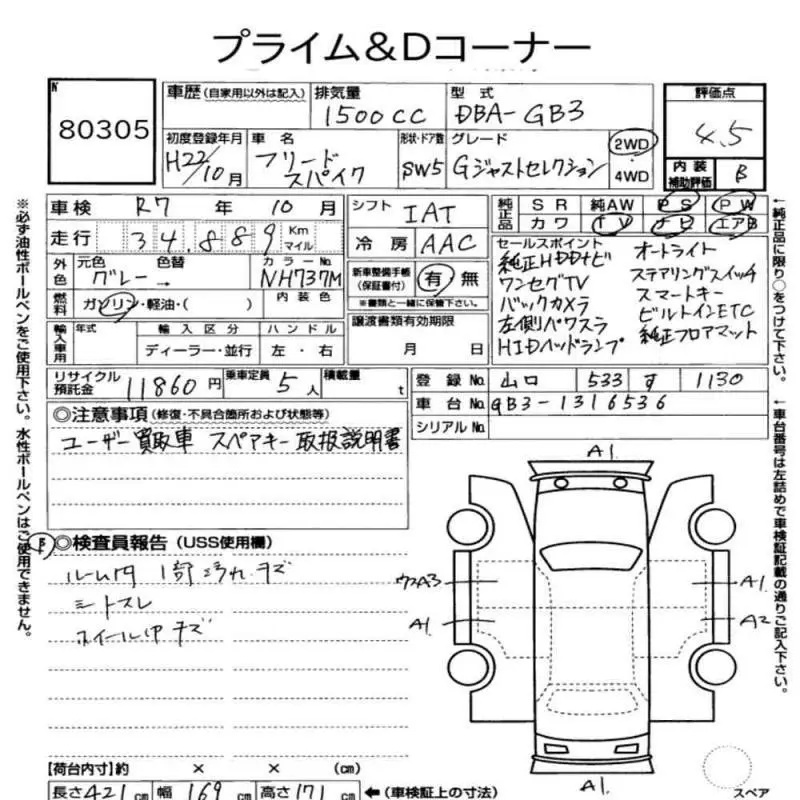 プライム&Dコーナー
80305
車歴 (自家用以外は記入)
排気量
1500cc
型式
DBA-GB3
評価点
4.5
初度登録年月
H22/10月
車名
フリード
スパイク
形状・ドア数
SW5
グレード
Gジャストセレクション
2WD
4WD
内装
補助評価
B
車検 R7年 10月
シフト IAT
純正品
SR 純AW PS PW
カワ TV ナビ エアB
走行 34,889 Km
マイル
冷房 AAC
外色
元色
グレー
色替
カラーNo.
NH737M
新車整備手帳
(保証書付)
有・無
※書類と一緒に保管下さい。
燃料
ガソリン・軽油・( )
内装色
輸入車用
年式
輸入区分
ディーラー・並行
ハンドル
左・右
譲渡書類有効期限
月 日
セールスポイント
純正HDDナビ
ワンセグTV
バックカメラ
左側パワスラ
HIDヘッドランプ
オートライト
ステアリングスイッチ
スマートキー
ビルトインETC
純正フロアマット
リサイクル
預託金
11860円
乗車定員 5人
積載量 t
登録No. 山口 533 す 1130
車台No. GB3-1316536
シリアルNo.
◎注意事項 (修復・不具合箇所および状態等)
ユーザー買取車 スペアキー 取扱説明書
◎検査員報告 (USS使用欄)
ルーム内 1部汚れ キズ
シートスレ
ホイール中 キズ
A1
A3
A1
A1
A2
A1
スペア
【荷台内寸】約 × × (cm)
長さ421cm 幅169cm 高さ171cm ←(車検証上の寸法)
※必ず油性ボールペンをご使用下さい。水性ボールペンはご使用できません。
←純正品に限り○をつけて下さい。
←車台番号は左詰めで車検証記載の通りご記入下さい。